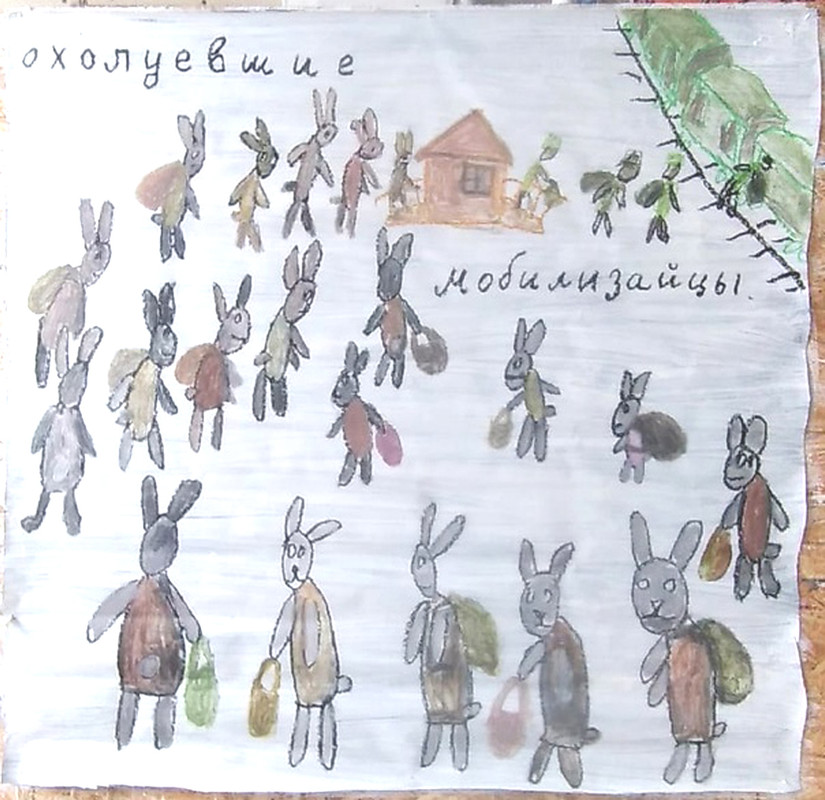 охолуевшие
мобилизайцы.